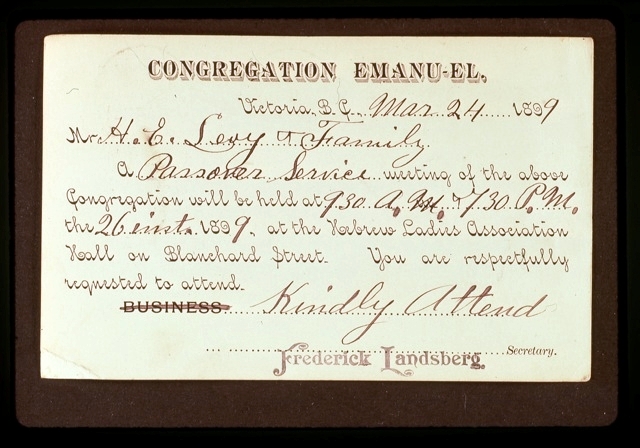 CONGREGATION EMANU-EL.
Victoria, B.C., Mar 24 1899
Mr. H. E. Levy & Family.
A Passover Service meeting of the above
Congregation will be held at 9.30 A.M. & 7.30 P.M.
the 26 inst. 1899, at the Hebrew Ladies Association
Hall on Blanchard Street. You are respectfully
requested to attend.
BUSINESS. Kindly Attend
Frederick Landsberg. Secretary.